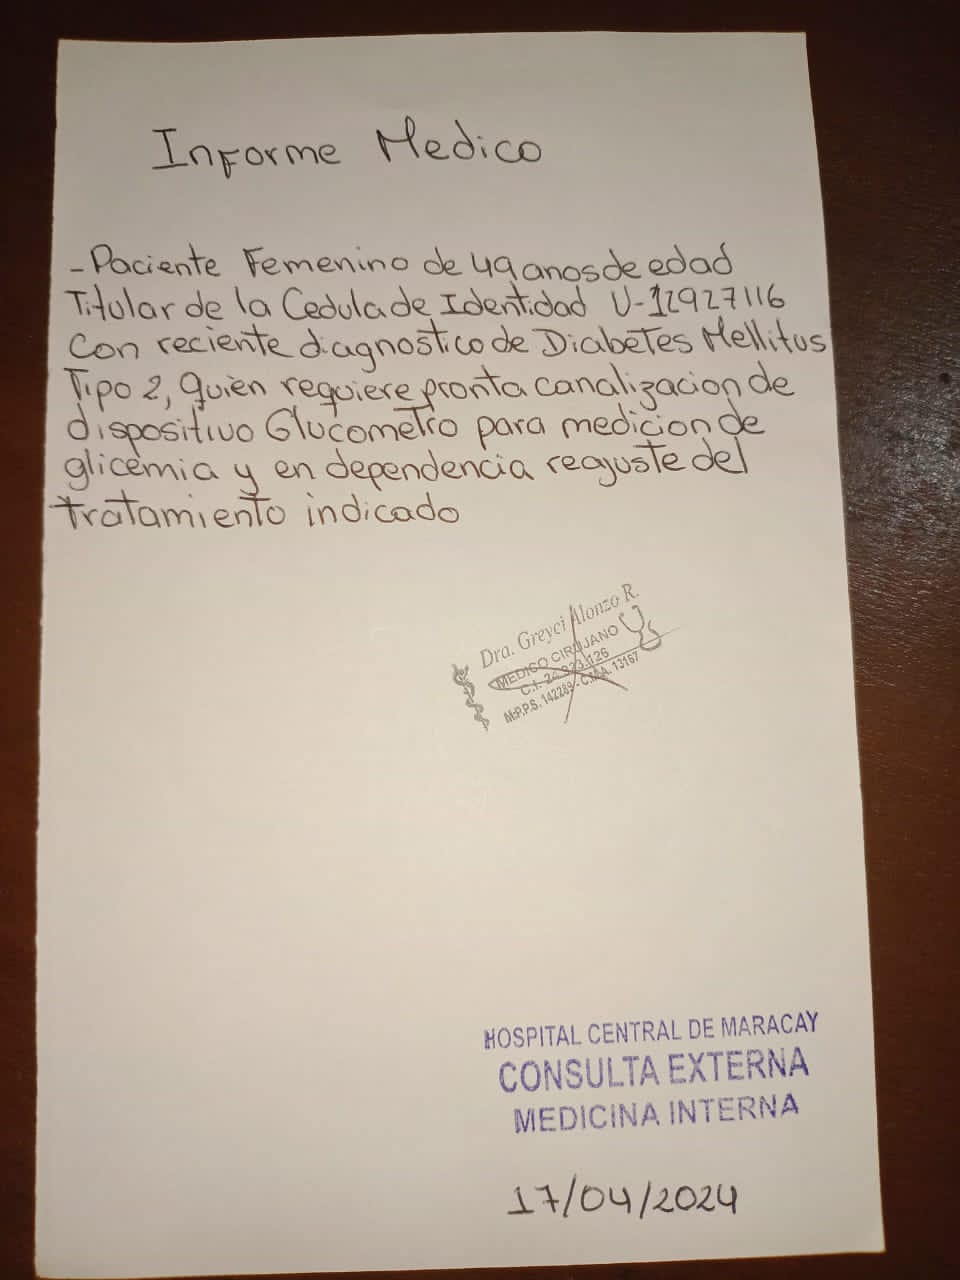 Informe Medico
- Paciente Femenino de 49 anos de edad
Titular de la Cedula de Identidad V-12927116
Con reciente diagnostico de Diabetes Mellitus
Tipo 2, Quien requiere pronta canalizacion de
dispositivo Glucometro para medicion de
glicemia y en dependencia reajuste del
tratamiento indicado
Dra. Greyci Alonzo R.
MEDICO CIRUJANO
C.I. 126
M.P.P.S. 142289 - C.M.A. 13167
HOSPITAL CENTRAL DE MARACAY
CONSULTA EXTERNA
MEDICINA INTERNA
17/04/2024